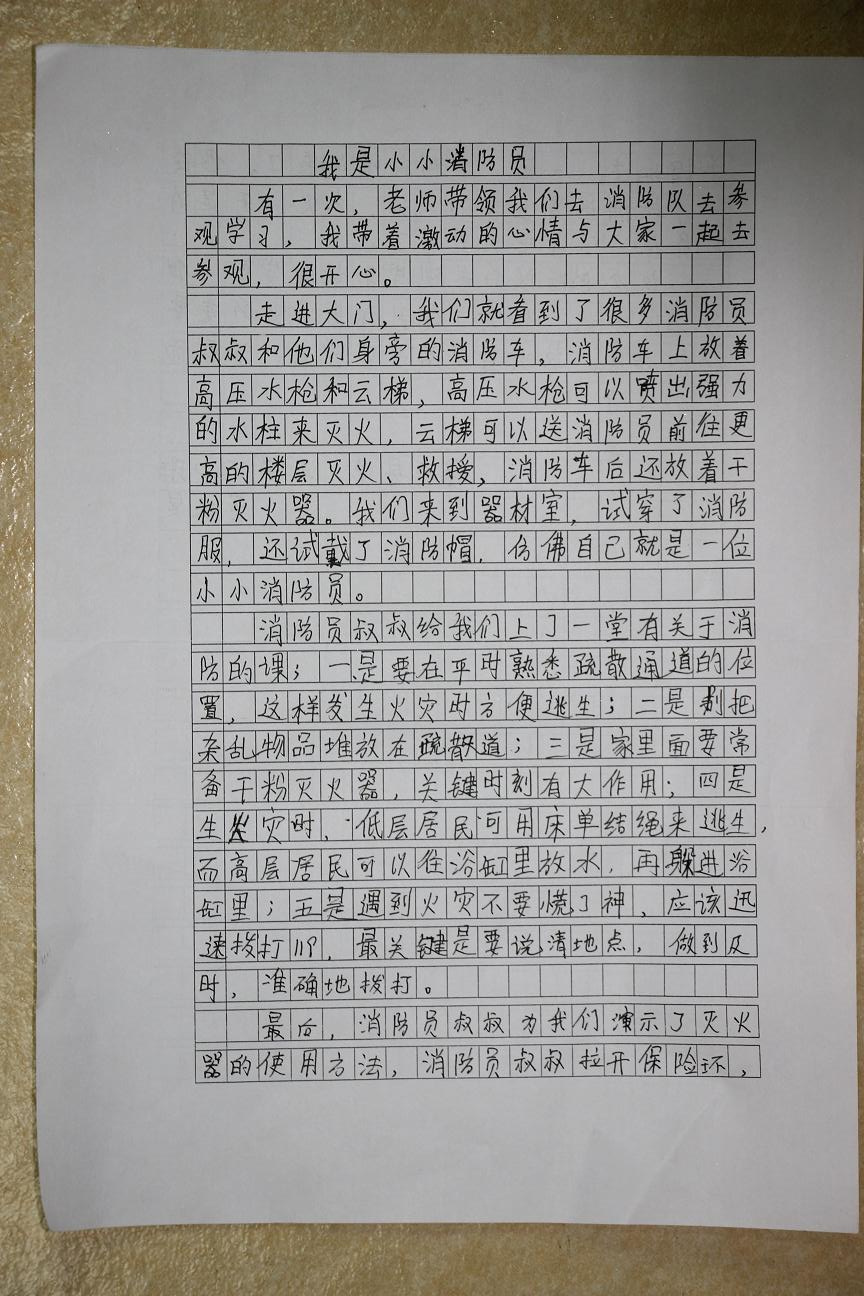 我是小小消防员
有一次，老师带领我们去消防队去参
观学习，我带着激动的心情与大家一起去
参观，很开心。
走进大门，我们就看到了很多消防员
叔叔和他们身旁的消防车，消防车上放着
高压水枪和云梯，高压水枪可以喷出强力
的水柱来灭火，云梯可以送消防员前往更
高的楼层灭火、救援，消防车后还放着干
粉灭火器。我们来到器材室，试穿了消防
服，还试戴了消防帽，仿佛自己就是一位
小小消防员。
消防员叔叔给我们上了一堂有关于消
防的课；一是要在平时熟悉疏散通道的位
置，这样发生火灾时方便逃生；二是别把
杂乱物品堆放在疏散道；三是家里面要常
备干粉灭火器，关键时刻有大作用；四是
生火灾时，低层居民可用床单结绳来逃生，
而高层居民可以往浴缸里放水，再躲进浴
缸里；五是遇到火灾不要慌了神，应该迅
速拨打119，最关键是要说清地点，做到及
时，准确地拨打。
最后，消防员叔叔为我们演示了灭火
器的使用方法，消防员叔叔拉开保险环，